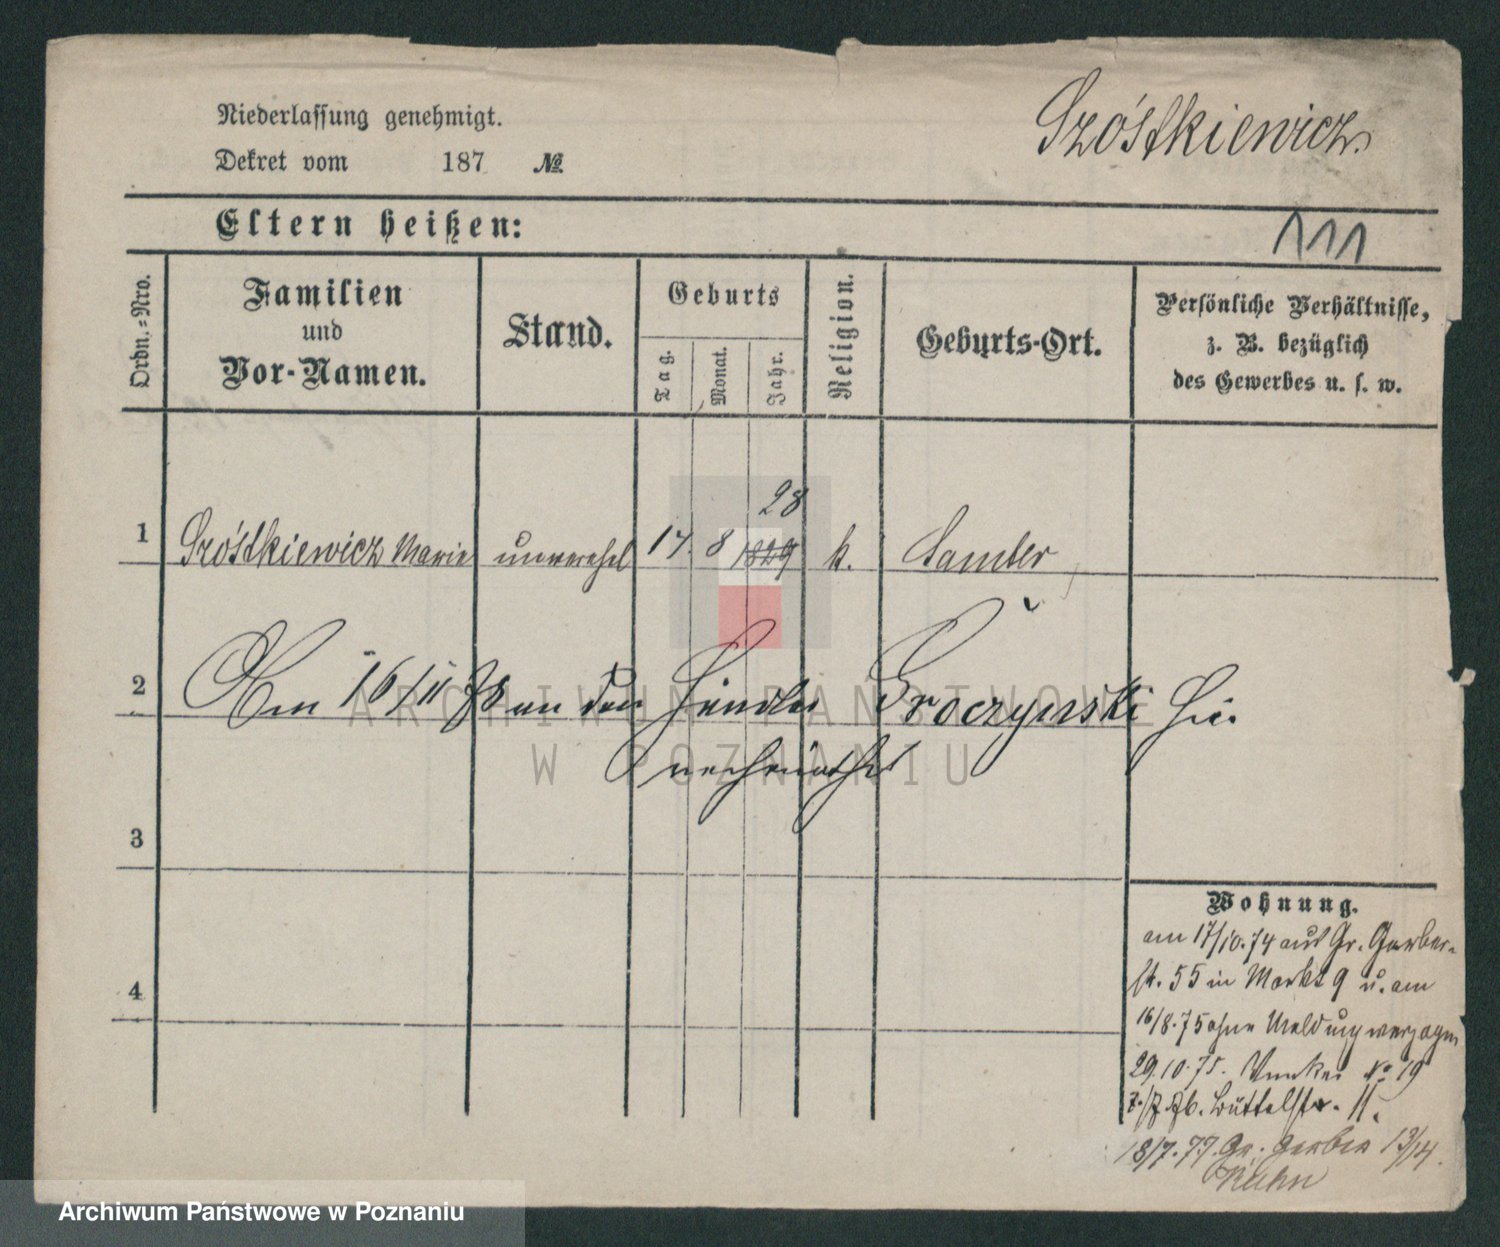 Niederlassung genehmigt.
Dekret vom 187 №
Szóstkiewicz.
Eltern heißen:
111
Ordn.=Nro.
Familien
und
Vor-Namen.
Stand.
Geburts
Tag.
Monat.
Jahr.
Religion.
Geburts-Ort.
Persönliche Verhältnisse,
z. B. bezüglich
des Gewerbes u. s. w.
28
1 Szóstkiewicz Marie unverehel 17. 8 1829 k. Samter
2 Am 16/11 78 an den Händler Groczynski hier
verheirathet
3
4
Wohnung.
am 17/10.74 aus Gr. Gerber-
st. 55 in Markt 9 u. am
16/8.75 ohne Meldung verzogen
29.10.75. No 19
76. Büttelstr. 11.
18/7.77. Gr. Gerber 13/14.
ARCHIWUM PAŃSTWOWE
W POZNANIU
Archiwum Państwowe w Poznaniu